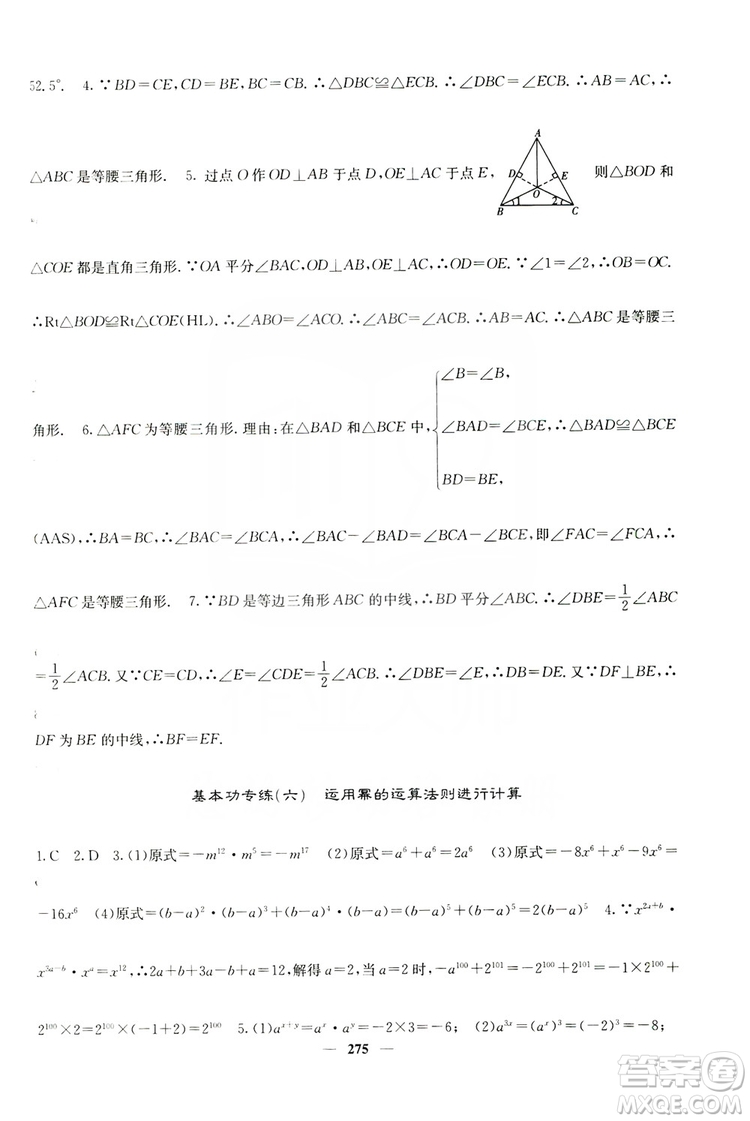 52.5°. 4.∵BD=CE,CD=BE,BC=CB.∴△DBC≌△ECB.∴∠DBC=∠ECB.∴AB=AC,∴
△ABC是等腰三角形. 5.过点O作OD⊥AB于点D,OE⊥AC于点E, 则△BOD和
A
D
E
O
B
1
2
C
△COE都是直角三角形.∵OA平分∠BAC,OD⊥AB,OE⊥AC.∴OD=OE.∵∠1=∠2,∴OB=OC.
∴Rt△BOD≌Rt△COE(HL).∴∠ABO=∠ACO.∴∠ABC=∠ACB.∴AB=AC.∴△ABC是等腰三
角形. 6.△AFC为等腰三角形.理由:在△BAD和△BCE中,{∠B=∠B, ∠BAD=∠BCE, BD=BE, ∴△BAD≌△BCE
(AAS),∴BA=BC,∴∠BAC=∠BCA,∴∠BAC-∠BAD=∠BCA-∠BCE,即∠FAC=∠FCA,∴
△AFC是等腰三角形. 7.∵BD是等边三角形ABC的中线,∴BD平分∠ABC.∴∠DBE=1/2∠ABC
=1/2∠ACB.又∵CE=CD,∴∠E=∠CDE=1/2∠ACB.∴∠DBE=∠E,∴DB=DE.又∵DF⊥BE,∴
DF为BE的中线,∴BF=EF.
基本功专练(六) 运用幂的运算法则进行计算
1.C 2.D 3.(1)原式=-m¹²·m⁵=-m¹⁷ (2)原式=a⁶+a⁶=2a⁶ (3)原式=-8x⁶+x⁶-9x⁶=
-16x⁶ (4)原式=(b-a)²·(b-a)³+(b-a)⁴·(b-a)=(b-a)⁵+(b-a)⁵=2(b-a)⁵ 4.∵x²ᵃ⁺ᵇ·
x³ᵃ⁻ᵇ·xᵃ=x¹²,∴2a+b+3a-b+a=12,解得a=2,当a=2时,-a¹⁰⁰+2¹⁰¹=-2¹⁰⁰+2¹⁰¹=-1×2¹⁰⁰+
2¹⁰⁰×2=2¹⁰⁰×(-1+2)=2¹⁰⁰ 5.(1)aˣ⁺ʸ=aˣ·aʸ=-2×3=-6; (2)a³ˣ=(aˣ)³=(-2)³=-8;
— 275 —
答案圈